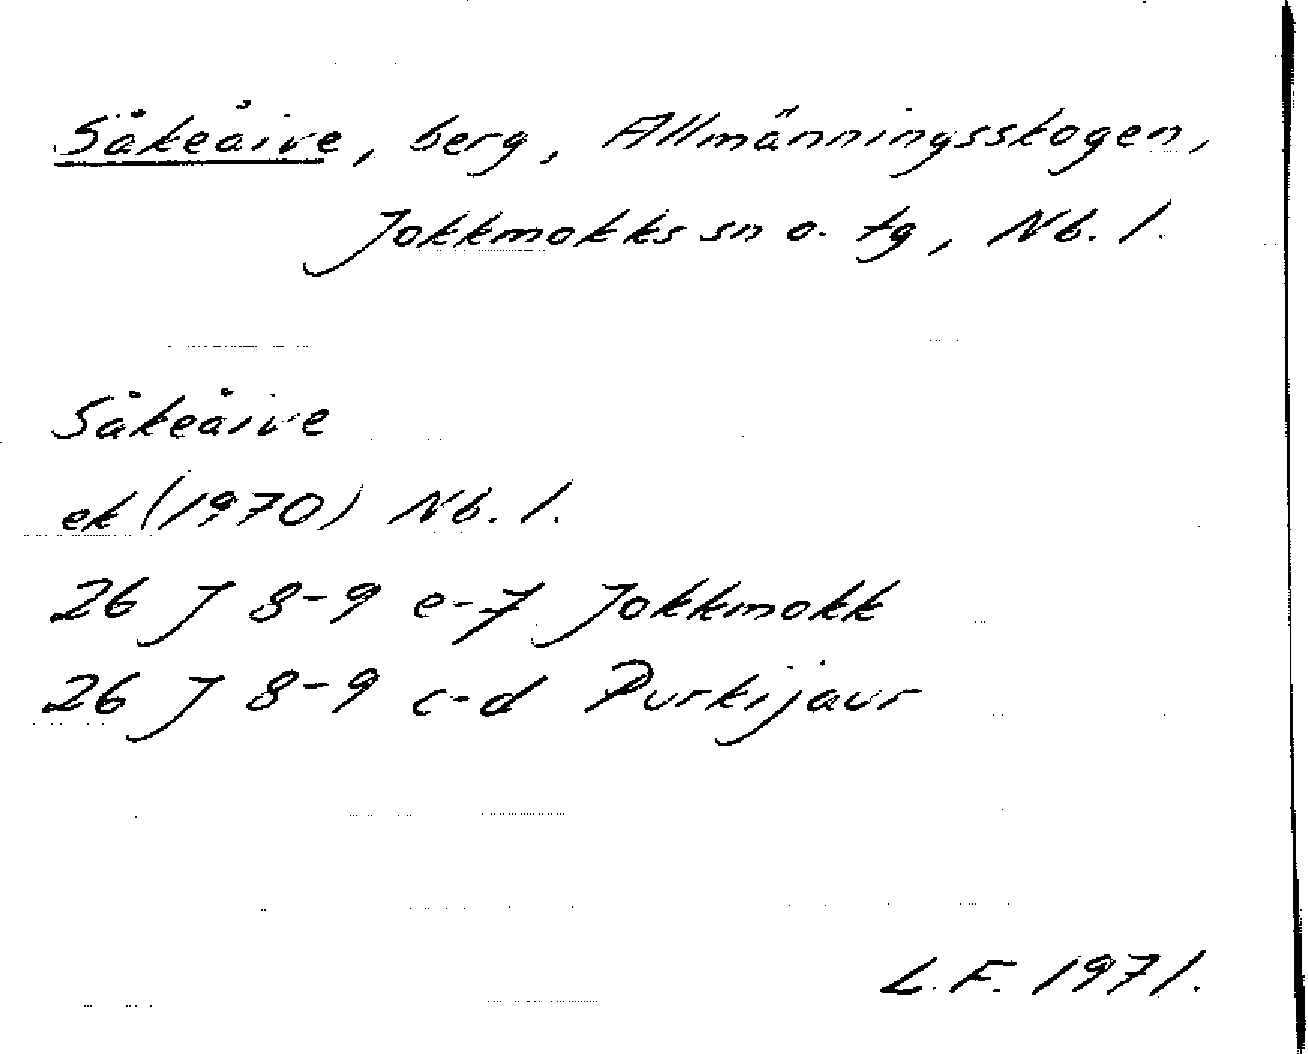 Såkeåive, berg, Allmänningsskogen,
Jokkmokks sn o. tg, Nb. l.
Såkeåive
ek (1970) Nb. l.
26 J 8-9 e-f Jokkmokk
26 J 8-9 c-d Purkijaur
L.F. 1971.